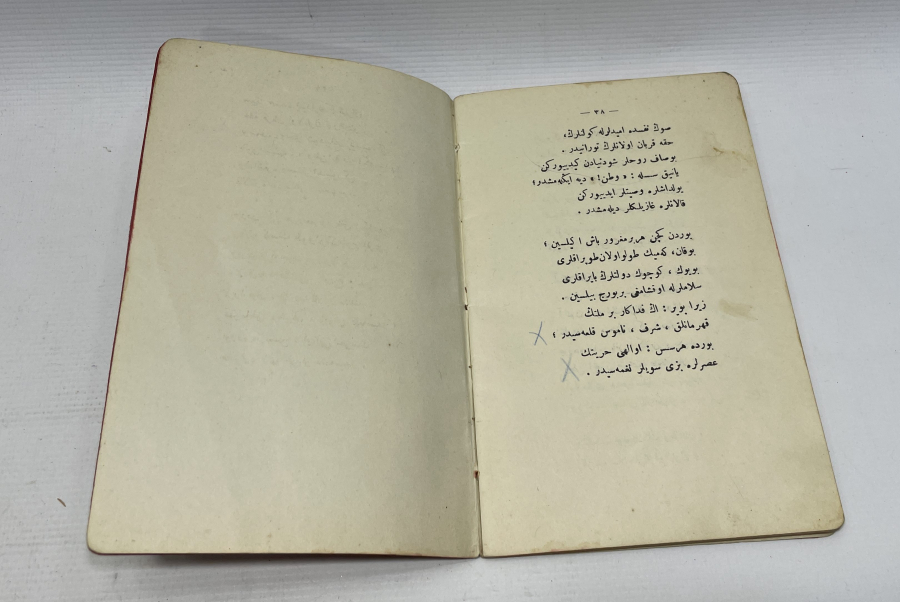 — ٣٨ —
صوڭ نفسده امیدلرله كولنلرڭ،
حقه قربان اولانلرڭ توراتیدر .
بوصاف روحلر شودنیادن كیدییوركن
یانیق سسله : « وطن! » دیه ایكله‌مشدر ؛
یولداشلره وصیتلر ایدییوركن
قالانلره غازیلكلر دیله‌مشدر .
بوردن كچن هر مغرور باش اكیلسین ؛
بوقان، كمیك طولو اولان طوپراقلری
بویوك ، كوچوك دولتلرڭ بایراقلری
سلاملرله اوقشامغی بربورج بیلسین .
زیرا بویر : اڭ فداكار بر ملتڭ
قهرمانلق ، شرف ، ناموس قلعه‌سیدر ؛
بورده هرسس : اوالهی حریتڭ
عصرلره بزی سویلر نغمه‌سیدر .